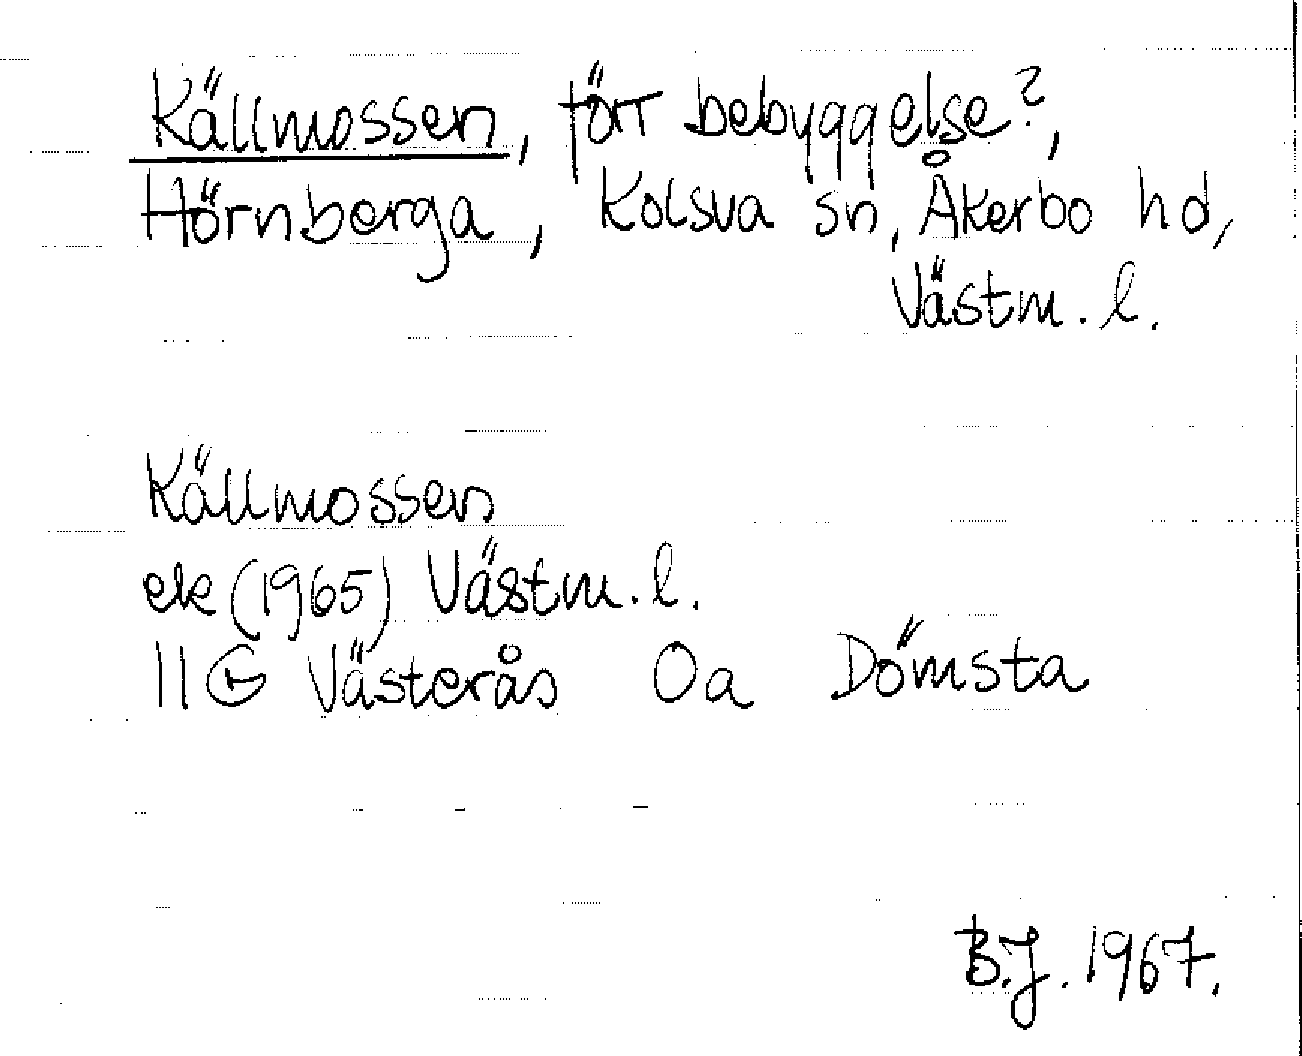 Källmossen, förr bebyggelse?,
Hörnberga, Kolsva sn, Åkerbo hd,
Västm. l.
Källmossen
ek (1965) Västm. l.
11G Västerås 0a Dömsta
B.J. 1967.